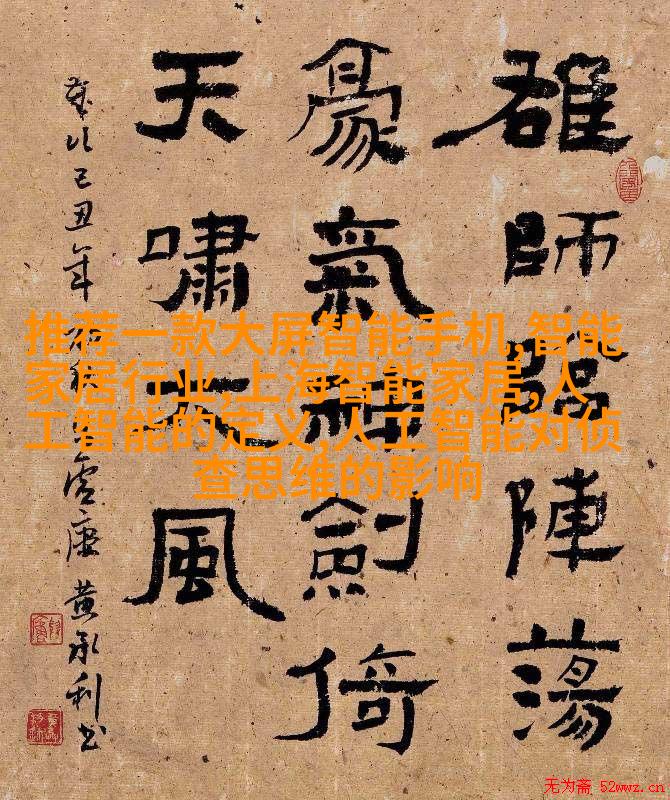 推荐一款大屏智能手机,智能
家居行业,上海智能家居,人
工智能的定义,人工智能对侦
查思维的影响
雄師臨陣蕩
豪氣劍倚
天嘯風
歲次己丑年
黄永利书
无为斋 52wwz.cn